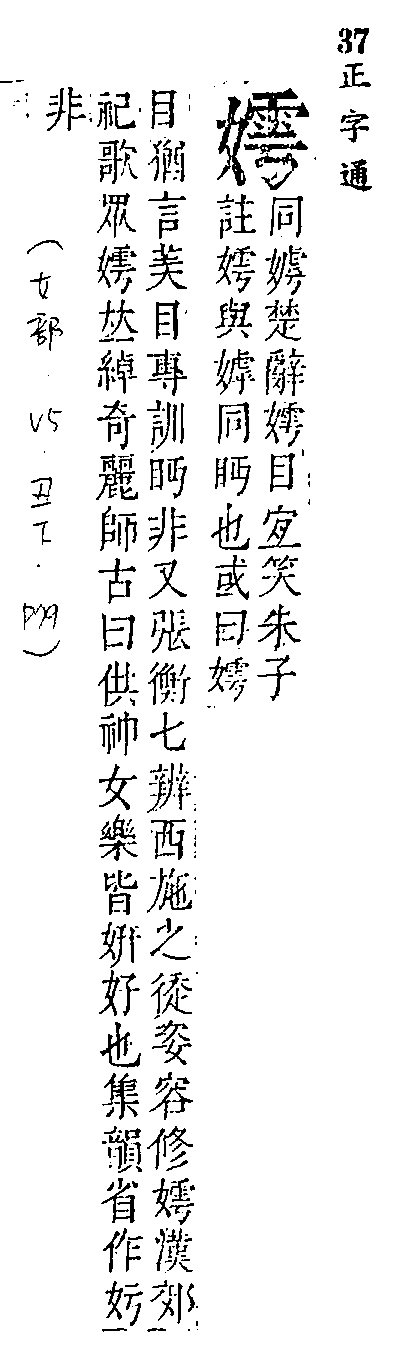 37 正字通
嫮
同嫭楚辭嫮目宜笑朱子
註嫮與嫭同眄也或曰嫮
目猶言美目專訓眄非又張衡七辨西施之徒姿容修嫮漢郊
祀歌眾嫮𠀤綽奇麗師古曰供神女樂皆姸好也集韻省作
非
(女部.V5.丑下.)